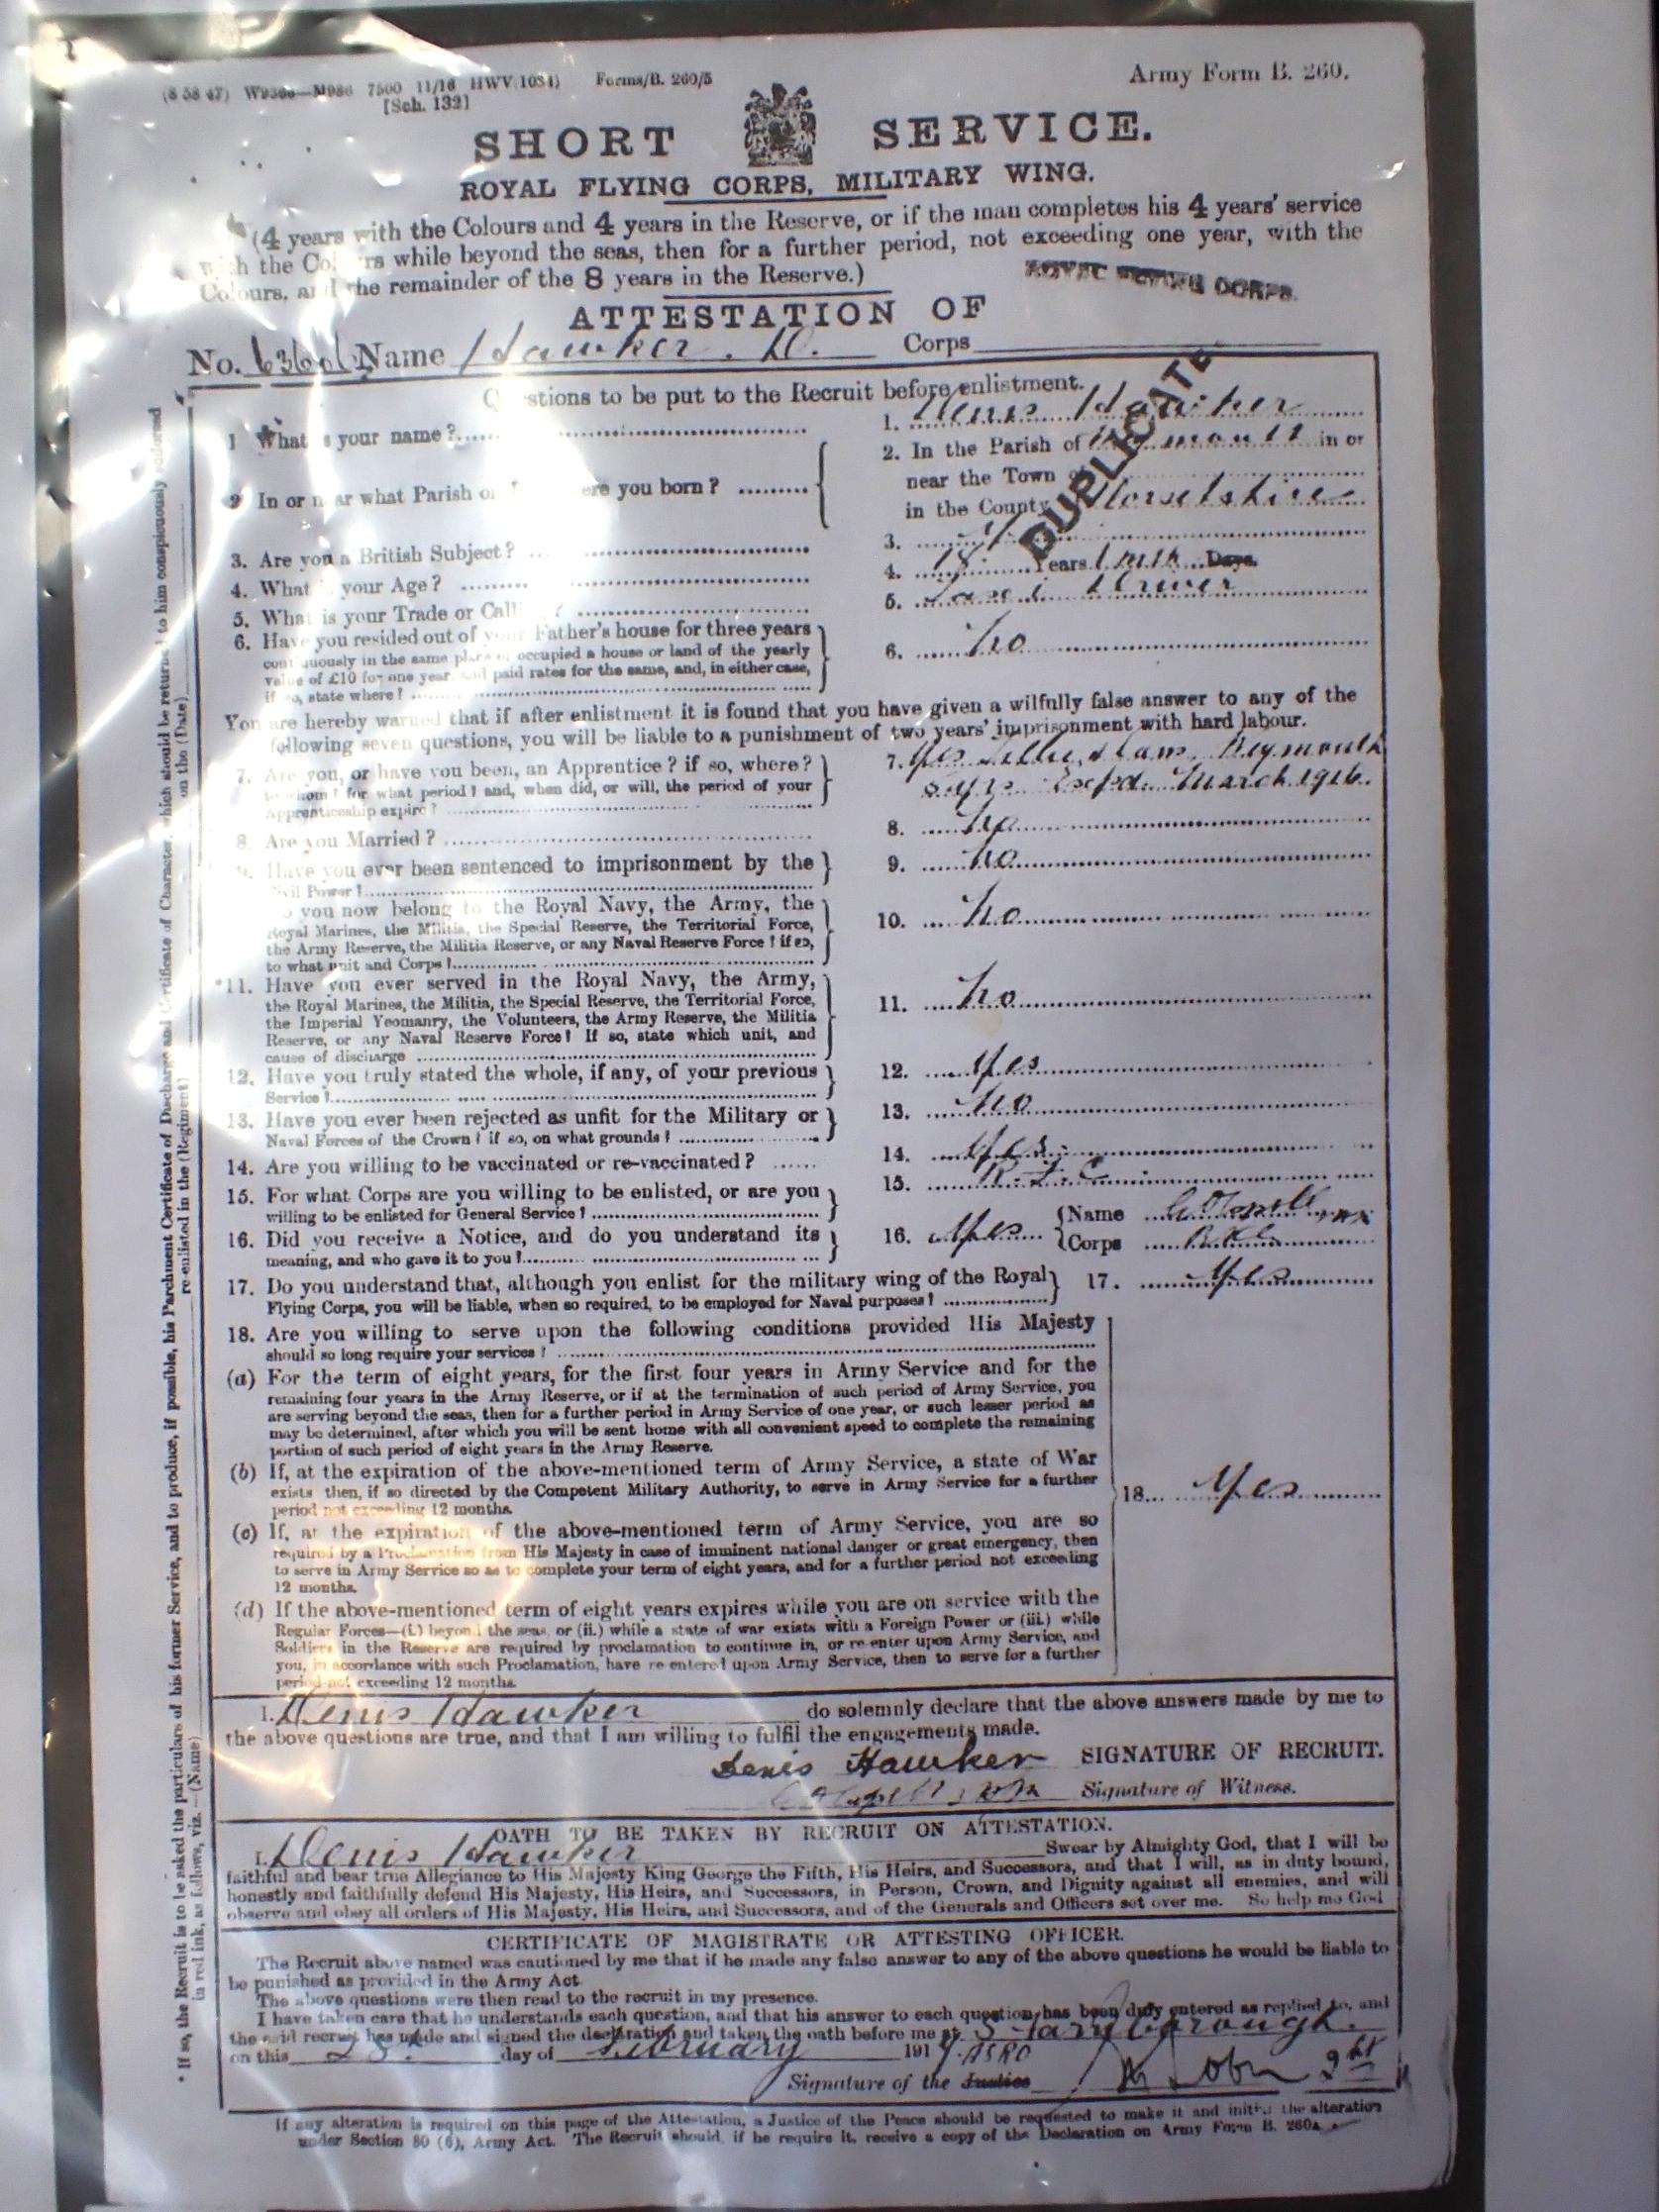 (8 58 47) W9366—M986 7500 11/16 HWV(1034) Forms/B. 260/5
[Sch. 132]
Army Form B. 260.
SHORT SERVICE.
ROYAL FLYING CORPS, MILITARY WING.
(4 years with the Colours and 4 years in the Reserve, or if the man completes his 4 years' service
with the Colours while beyond the seas, then for a further period, not exceeding one year, with the
Colours, and the remainder of the 8 years in the Reserve.)
ROYAL FLYING CORPS.
ATTESTATION OF
No. Name Hawker. D. Corps
DUPLICATE
Questions to be put to the Recruit before enlistment.
1 What is your name? 1. Denis Hawker
2 In or near what Parish or were you born? 2. In the Parish of Weymouth in or
near the Town of
in the County Dorsetshire
3. Are you a British Subject? 3.
4. What is your Age? 4. 18 Years 1 mth Days.
5. What is your Trade or Calling? 5. Driver
6. Have you resided out of your Father's house for three years
continuously in the same place or occupied a house or land of the yearly
value of £10 for one year, and paid rates for the same, and, in either case,
if so, state where? 6. no
You are hereby warned that if after enlistment it is found that you have given a wilfully false answer to any of the
following seven questions, you will be liable to a punishment of two years' imprisonment with hard labour.
7. Are you, or have you been, an Apprentice? if so, where?
to whom? for what period? and, when did, or will, the period of your
Apprenticeship expire? 7. Yes Weymouth
March 1916.
8. Are you Married? 8. no
9. Have you ever been sentenced to imprisonment by the
Civil Power? 9. no
Do you now belong to the Royal Navy, the Army, the
Royal Marines, the Militia, the Special Reserve, the Territorial Force,
the Army Reserve, the Militia Reserve, or any Naval Reserve Force? if so,
to what unit and Corps? 10. no
*11. Have you ever served in the Royal Navy, the Army,
the Royal Marines, the Militia, the Special Reserve, the Territorial Force,
the Imperial Yeomanry, the Volunteers, the Army Reserve, the Militia
Reserve, or any Naval Reserve Force? If so, state which unit, and
cause of discharge 11. no
12. Have you truly stated the whole, if any, of your previous
Service? 12. Yes
13. Have you ever been rejected as unfit for the Military or
Naval Forces of the Crown? if so, on what grounds? 13. no
14. Are you willing to be vaccinated or re-vaccinated? 14. Yes
15. For what Corps are you willing to be enlisted, or are you
willing to be enlisted for General Service? 15. R.F.C
16. Did you receive a Notice, and do you understand its
meaning, and who gave it to you? 16. Yes Name
Corps
17. Do you understand that, although you enlist for the military wing of the Royal
Flying Corps, you will be liable, when so required, to be employed for Naval purposes? 17. Yes
18. Are you willing to serve upon the following conditions provided His Majesty
should so long require your services?
(a) For the term of eight years, for the first four years in Army Service and for the
remaining four years in the Army Reserve, or if at the termination of such period of Army Service, you
are serving beyond the seas, then for a further period in Army Service of one year, or such lesser period as
may be determined, after which you will be sent home with all convenient speed to complete the remaining
portion of such period of eight years in the Army Reserve.
(b) If, at the expiration of the above-mentioned term of Army Service, a state of War
exists then, if so directed by the Competent Military Authority, to serve in Army Service for a further
period not exceeding 12 months. 18... Yes
(c) If, at the expiration of the above-mentioned term of Army Service, you are so
required by a Proclamation from His Majesty in case of imminent national danger or great emergency, then
to serve in Army Service so as to complete your term of eight years, and for a further period not exceeding
12 months.
(d) If the above-mentioned term of eight years expires while you are on service with the
Regular Forces—(i.) beyond the seas, or (ii.) while a state of war exists with a Foreign Power or (iii.) while
Soldiers in the Reserve are required by proclamation to continue in, or re-enter upon Army Service, and
you, in accordance with such Proclamation, have re-entered upon Army Service, then to serve for a further
period not exceeding 12 months.
I, Denis Hawker do solemnly declare that the above answers made by me to
the above questions are true, and that I am willing to fulfil the engagements made.
Denis Hawker SIGNATURE OF RECRUIT.
Signature of Witness.
OATH TO BE TAKEN BY RECRUIT ON ATTESTATION.
I, Denis Hawker Swear by Almighty God, that I will be
faithful and bear true Allegiance to His Majesty King George the Fifth, His Heirs, and Successors, and that I will, as in duty bound,
honestly and faithfully defend His Majesty, His Heirs, and Successors, in Person, Crown, and Dignity against all enemies, and will
observe and obey all orders of His Majesty, His Heirs, and Successors, and of the Generals and Officers set over me. So help me God
CERTIFICATE OF MAGISTRATE OR ATTESTING OFFICER.
The Recruit above named was cautioned by me that if he made any false answer to any of the above questions he would be liable to
be punished as provided in the Army Act.
The above questions were then read to the recruit in my presence.
I have taken care that he understands each question, and that his answer to each question has been duly entered as replied to, and
the said recruit has made and signed the declaration and taken the oath before me at S. Farnborough.
on this day of February 1917. ASRO
Signature of the Justice
If any alteration is required on this page of the Attestation, a Justice of the Peace should be requested to make it and initial the alteration
under Section 80 (6), Army Act. The Recruit should, if he require it, receive a copy of the Declaration on Army Form B. 260A.
* If so, the Recruit is to be asked the particulars of his former Service, and to produce, if possible, his Parchment Certificate of Discharge and Certificate of Character, which should be returned to him conspicuously endorsed
in red ink, as follows, viz.—(Name) re-enlisted in the (Regiment) on the (Date)